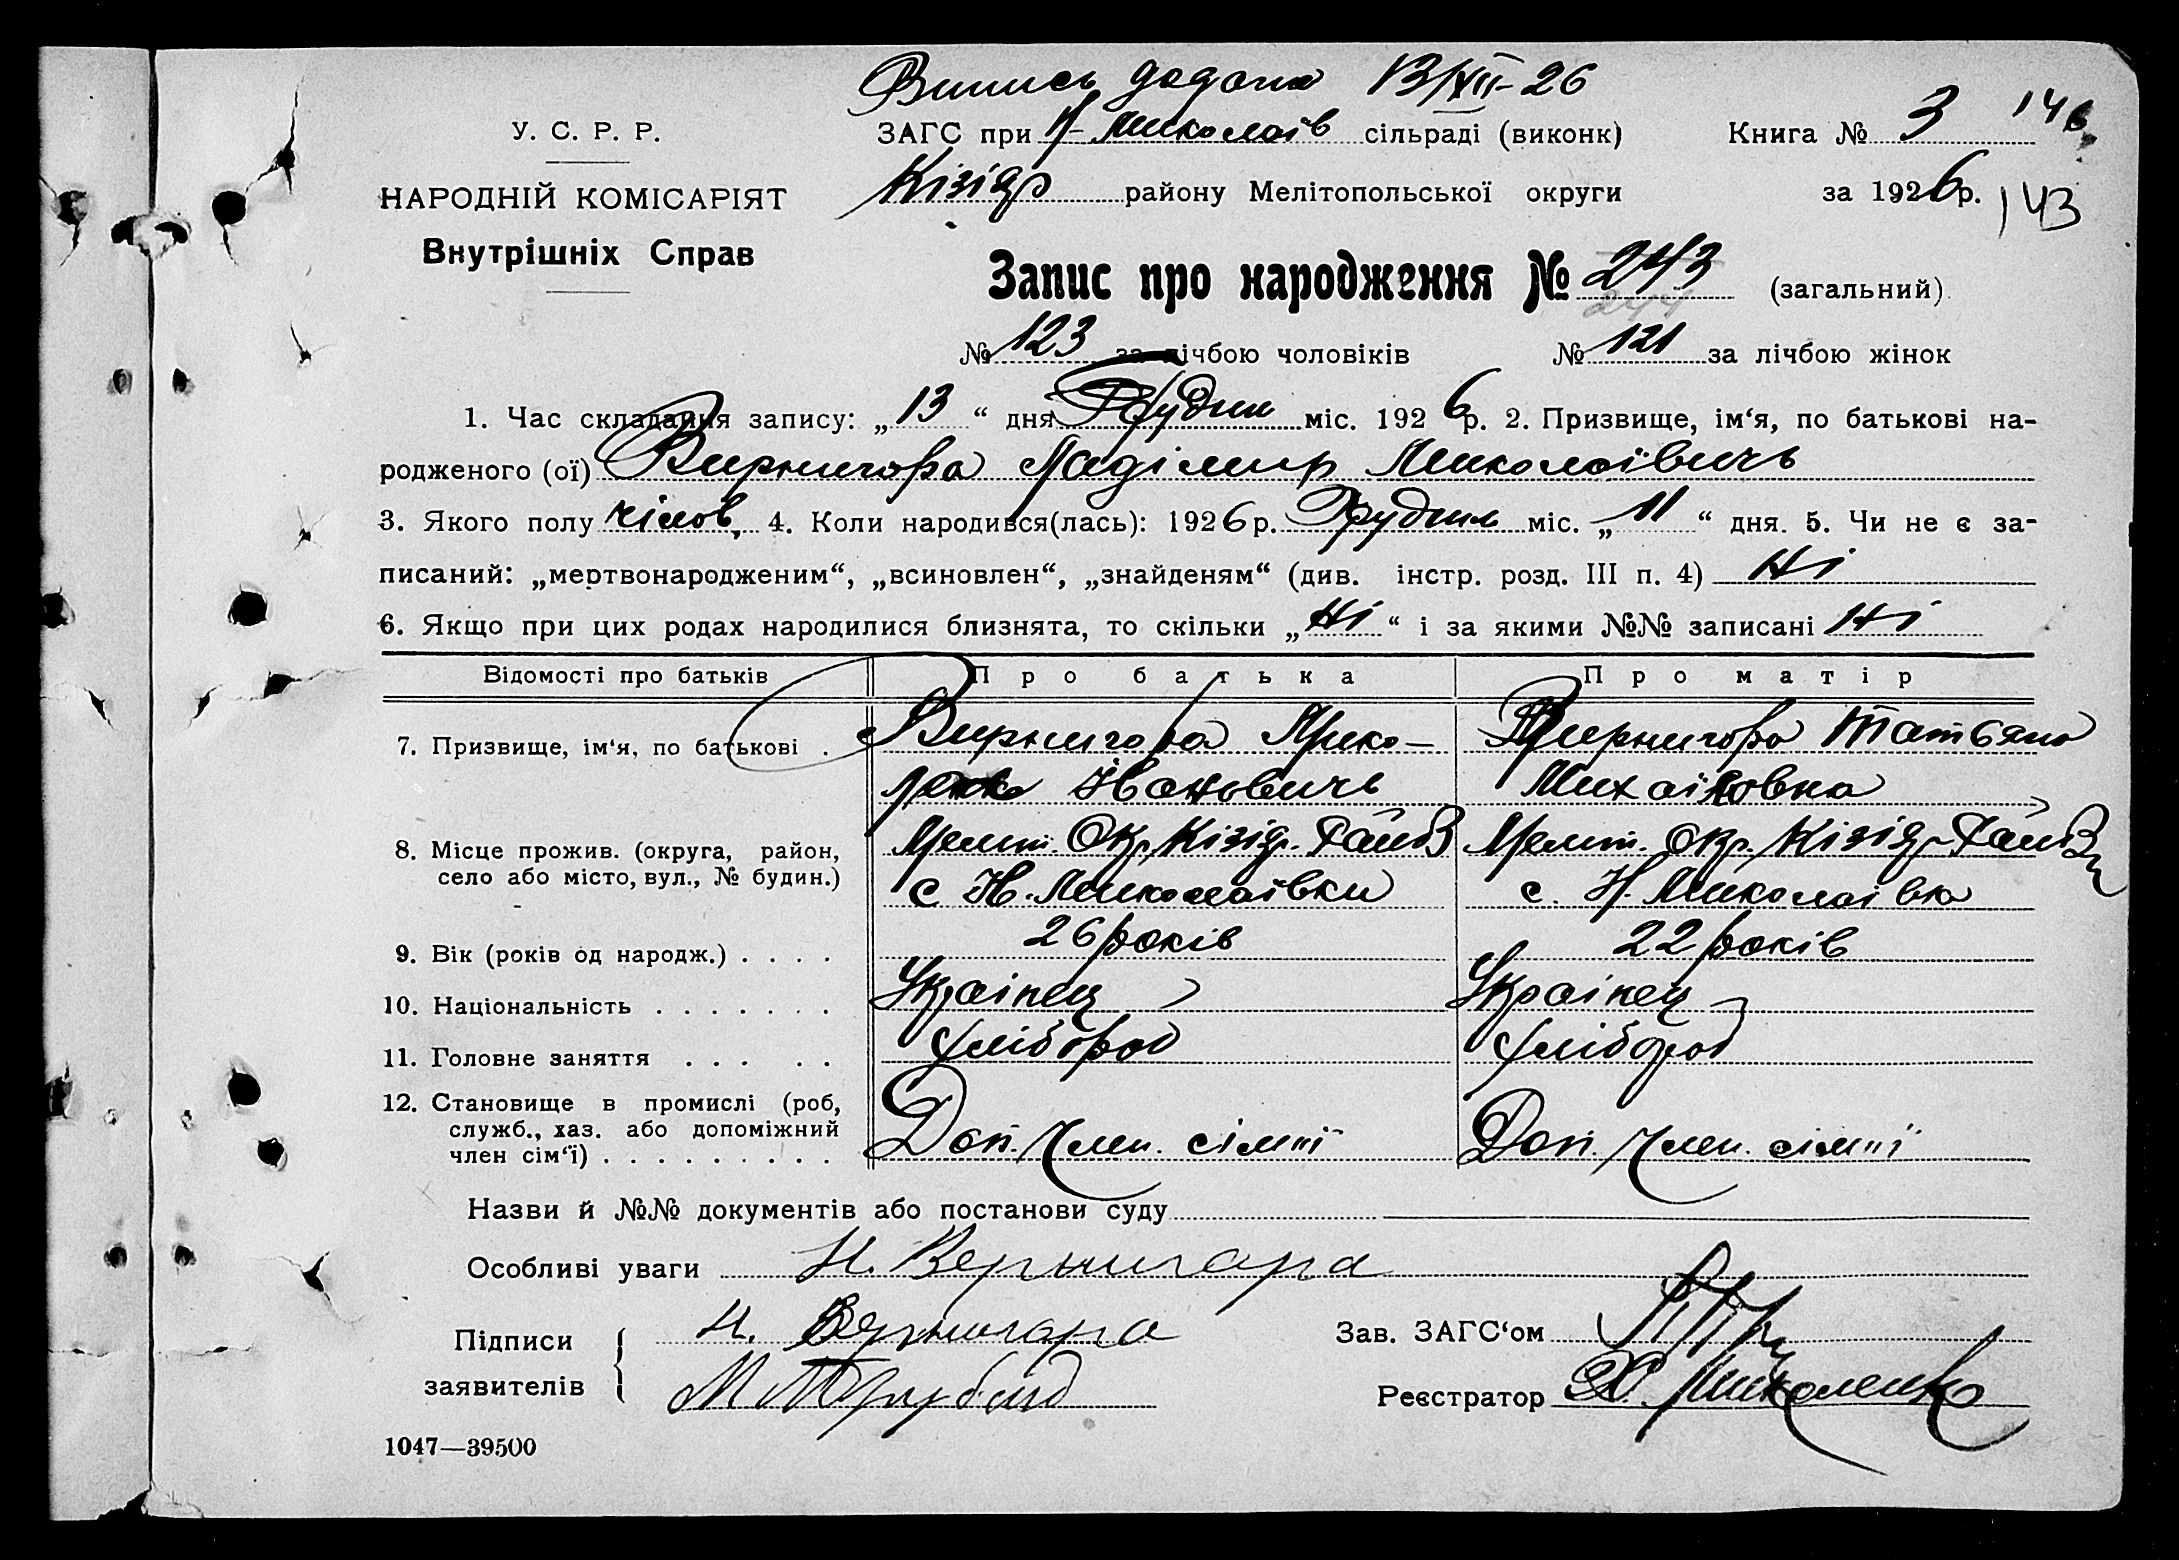 Випись додана 13/XII-26
У. С. Р. Р.
ЗАГС при Н-Миколаїв сільраді (виконк)
Книга № 3
146
НАРОДНІЙ КОМІСАРІЯТ
Кізіяр району Мелітопольської округи
за 1926р.
143
Внутрішніх Справ
Запис про народження № 243 (загальний).
244
№ 123 за лічбою чоловіків № 121 за лічбою жінок
1. Час складання запису: „13“ дня Грудня міс. 1926р. 2. Призвище, ім‘я, по батькові на-
родженого (ої) Вирнигора Ладімир Миколаївичь
3. Якого полу чілов, 4. Коли народився(лась): 1926р. Грудня міс. „11“ дня. 5. Чи не є за-
писаний: „мертвонародженим“, „всиновлен“, „знайденям“ (див. інстр. розд. III п. 4) Ні
6. Якщо при цих родах народилися близнята, то скільки „Ні“ і за якими №№ записані Ні
Відомості про батьків Про батька Про матір
7. Призвище, ім‘я, по батькові . Вирнигора Мико- Вирнигора Татьяна
Івановичь Михаіловна
8. Місце прожив. (округа, район, Мелит. Окр. Кізіяр. Району Мелит. Окр. Кізіяр Району
село або місто, вул., № будин.) с Н. Миколаівки с. Н. Миколаівка
9. Вік (років од народж.) . . . . 26 років 22 років
10. Національність . . . . . . . Украінец Украінец
11. Головне заняття . . . . . хлібороб хлібороб
12. Становище в промислі (роб,
служб., хаз. або допоміжний
член сім‘ї) . . . . . . . . . Доп. член. сімпї Доп. член. сімпї
Назви й №№ документів або постанови суду
Особливі уваги Н. Вернигара
Підписи Н. Вернигара
Зав. ЗАГС‘ом
заявителів
Реєстратор Миколенко
1047—39500